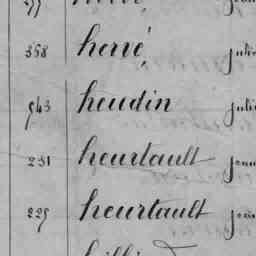 368 hervé juli
543 heudin juli
231 heurtault jean
229 heurtault jean